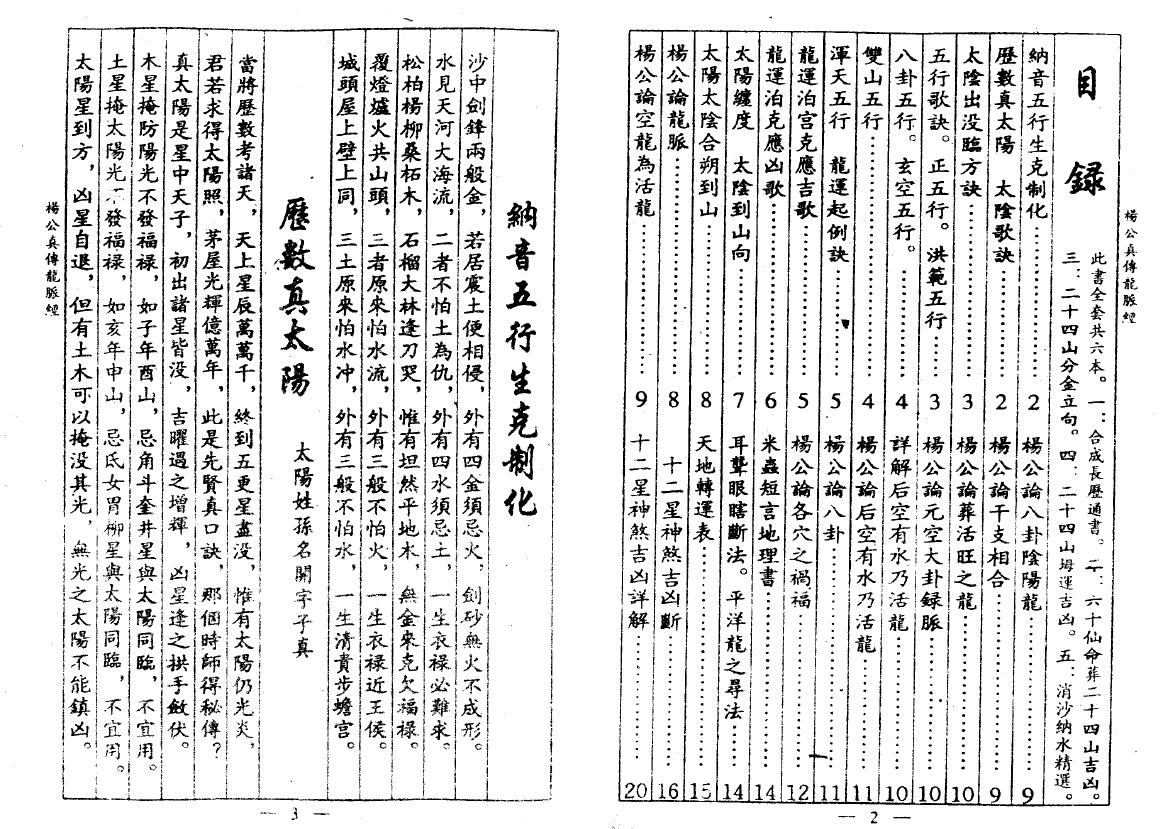 楊公真傳龍脈經
目錄
此書全套共六本。一:合成長歷通書。二、六十仙命葬二十四山吉凶。
三、二十四山分金立向。四、二十四山坶運吉凶。五、消沙納水精選。
納音五行生克制化 2 楊公論八卦陰陽龍 9
歷數真太陽 太陰歌訣 2 楊公論干支相合 9
太陰出没臨方訣 3 楊公論葬活旺之龍 10
五行歌訣。正五行。洪範五行 3 楊公論元空大卦録脈 10
八卦五行。玄空五行。 4 詳解后空有水乃活龍 10
雙山五行 4 楊公論后空有水乃活龍 11
渾天五行 龍運起例訣 5 楊公論八卦 11
龍運泊宫克應吉歌 5 楊公論各穴之禍福 12
龍運泊克應凶歌 6 米蟲短言地理書 14
太陽纏度 太陰到山向 7 耳聾眼瞎斷法。平洋龍之尋法 14
太陽太陰合朔到山 8 天地轉運表 15
楊公論龍脈 8 十二星神煞吉凶斷 16
楊公論空龍為活龍 9 十二星神煞吉凶詳解 20
— 2 —
納音五行生克制化
沙中劍鋒兩般金，若居震土便相侵，外有四金須忌火，劍砂無火不成形。
水見天河大海流，二者不怕土為仇，外有四水須忌土，一生衣禄必難求。
松柏楊柳桑柘木，石榴大林逢刀哭，惟有坦然平地木，無金來克欠福禄。
覆燈爐火共山頭，三者原來怕水流，外有三般不怕火，一生衣禄近王侯。
城頭屋上壁上同，三土原來怕水冲，外有三般不怕水，一生清貴步蟾宫。
歷數真太陽
太陽姓孫名開字子真
當將歷數考諸天，天上星辰萬萬千，終到五更星盡没，惟有太陽仍光炎，
君若求得太陽照，茅屋光輝億萬年，此是先賢真口訣，那個時師得秘傳？
真太陽是星中天子，初出諸星皆没，吉曜遇之增輝，凶星逢之拱手斂伏。
木星掩防陽光不發福禄，如子年酉山，忌角斗奎井星與太陽同臨，不宜用。
土星掩太陽光不發福禄，如亥年申山，忌氐女胃柳星與太陽同臨，不宜用。
太陽星到方，凶星自退，但有土木可以掩没其光，無光之太陽不能鎮凶。
楊公真傳龍脈經
— 3 —